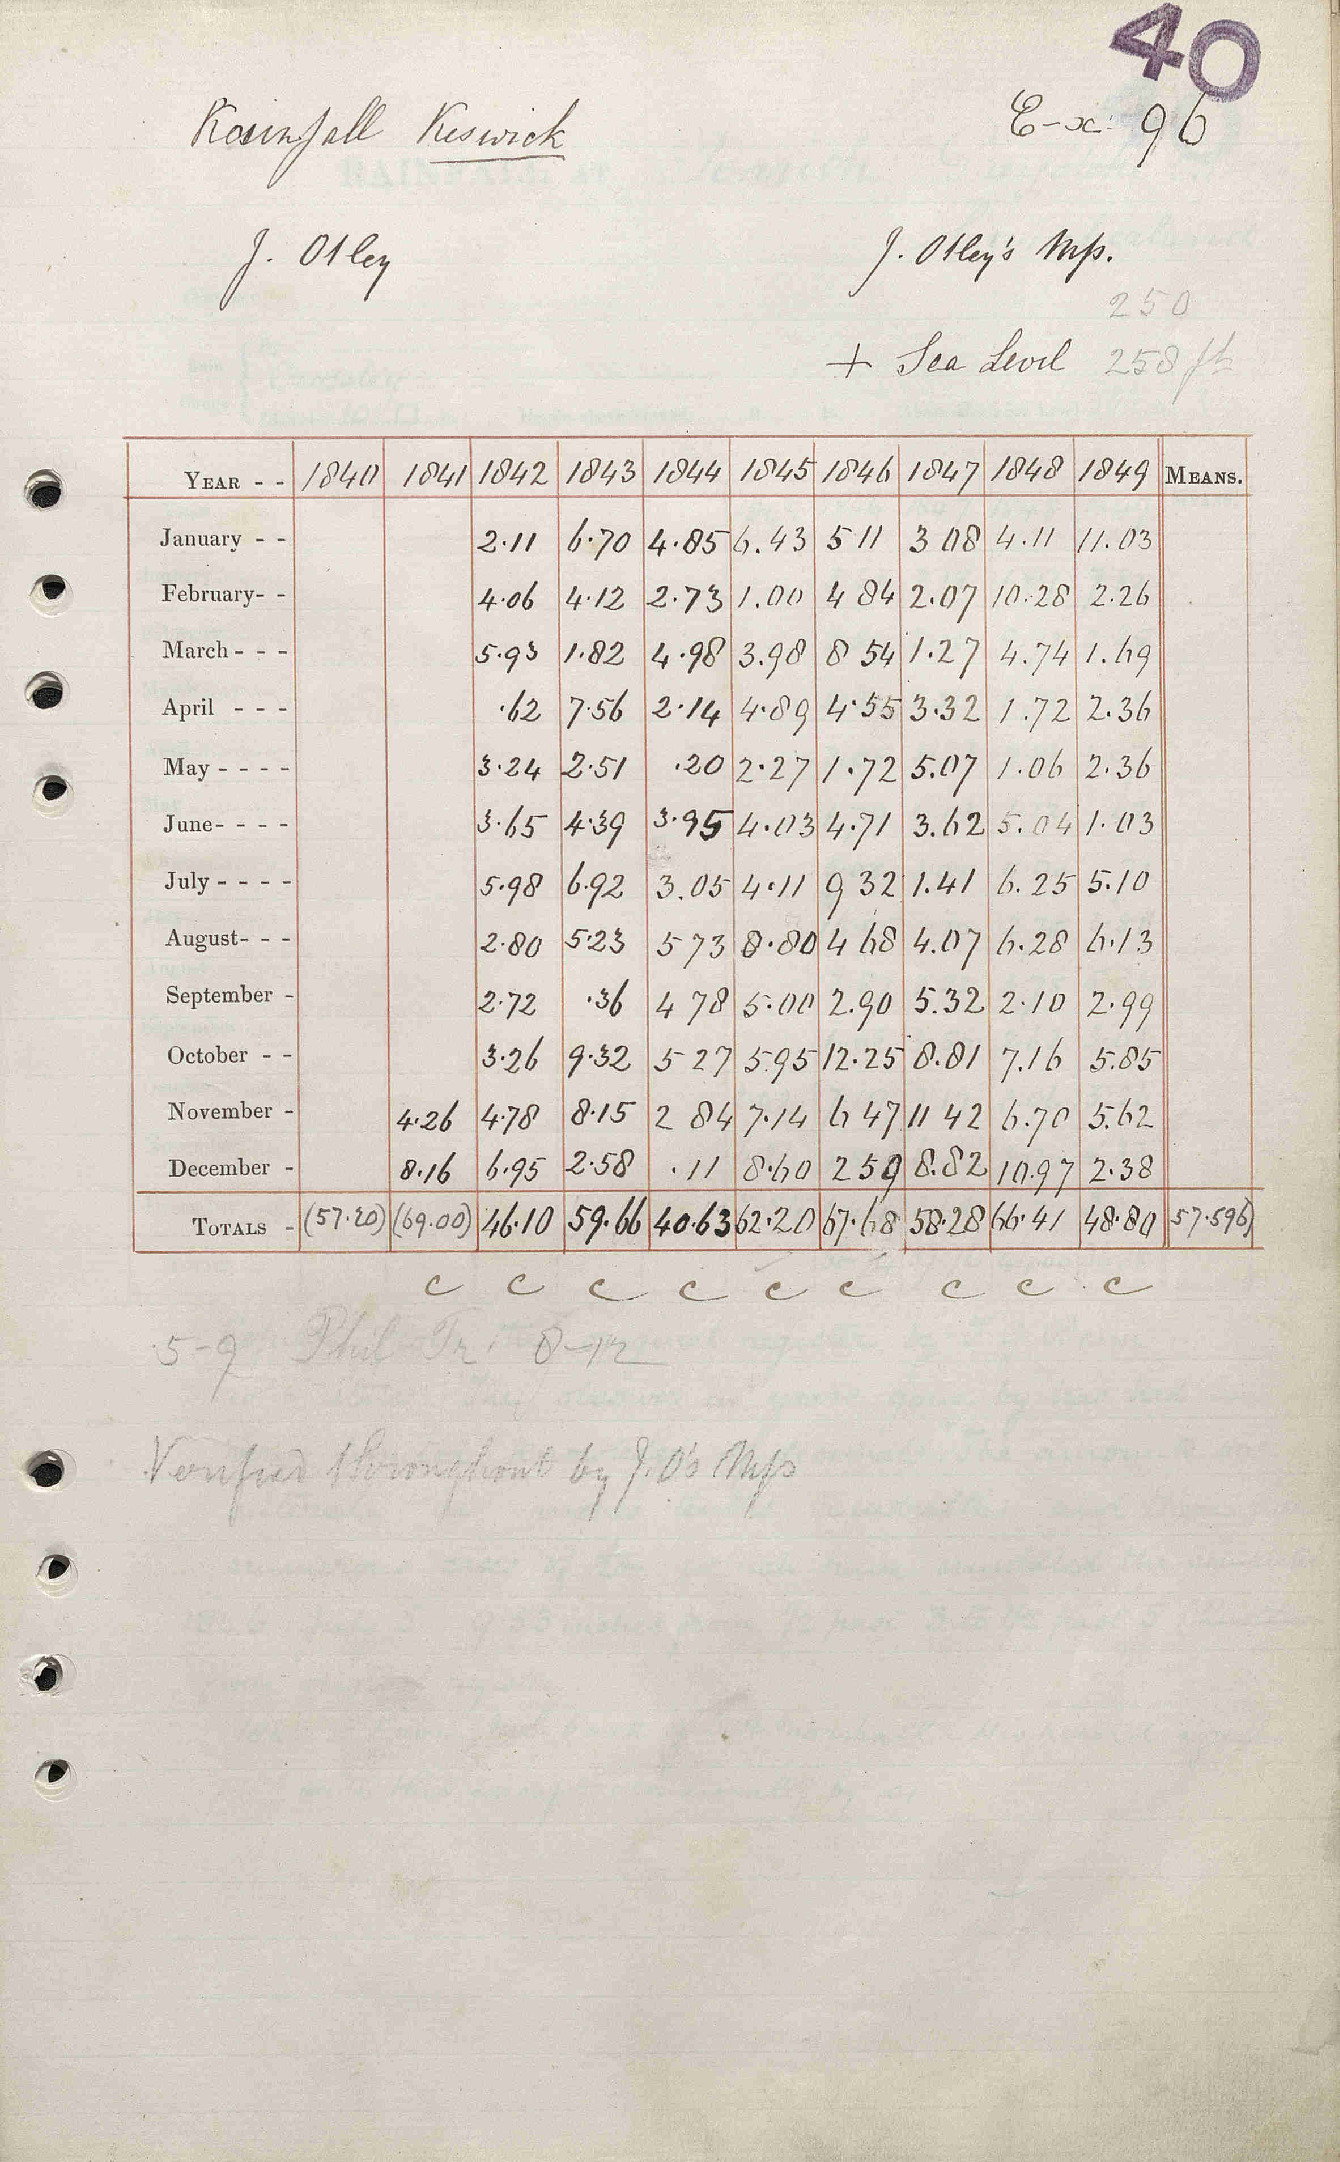 40
Rainfall Keswick E-x 96
J. Otley J. Otley's Mss.
250
+ Sea Level 258 ft
YEAR - - 1840 1841 1842 1843 1844 1845 1846 1847 1848 1849 MEANS.
January - - 2.11 6.70 4.85 6.43 5 11 3 08 4.11 11.03
February- - 4.06 4.12 2.73 1.00 4 84 2.07 10.28 2.26
March - - - 5.93 1.82 4.98 3.98 8 54 1.27 4.74 1.69
April - - - .62 7.56 2.14 4.89 4.55 3.32 1.72 2.36
May - - - - 3.24 2.51 .20 2.27 1.72 5.07 1.06 2.36
June- - - - 3.65 4.39 3.95 4.03 4.71 3.62 5.04 1.03
July - - - - 5.98 6.92 3.05 4.11 9 32 1.41 6.25 5.10
August- - - 2.80 5.23 5 73 8.80 4 68 4.07 6.28 6.13
September - 2.72 .36 4 78 5.00 2.90 5.32 2.10 2.99
October - - 3.26 9.32 5 27 5.95 12.25 8.81 7.16 5.85
November - 4.26 4.78 8.15 2 84 7.14 6 47 11 42 6.70 5.62
December - 8.16 6.95 2.58 .11 8.60 2 59 8.82 10.97 2.38
TOTALS - (57.20) (69.00) 46.10 59.66 40.63 62.20 67.68 58.28 66.41 48.80 57.596)
c c c c c c c c c
5-9 Phil Tr. 8-12
Verified throughout by J.O's Mss